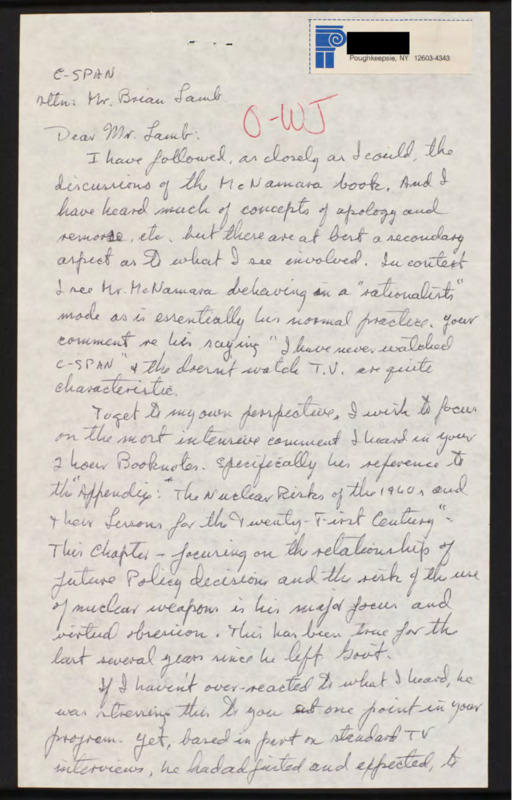 Poughkeepsie, NY 12603-4343
C-SPAN
Attn: Mr. Brian Lamb
O-WJ
Dear Mr. Lamb:
I have followed, as closely as I could, the
discussions of the McNamara book. And I
have heard much of concepts of apology and
remorse, etc. but these are at best a secondary
aspect as to what I see involved. In context
I see Mr. McNamara behaving in a "rationalists"
mode as is essentially his normal practice. Your
comment re his saying "I have never watched
C-SPAN" & the doesn't watch T.V. are quite
characteristic.
To get to my own perspective, I wish to focus
on the most intensive comment I heard in your
2 hour Booknotes. Specifically his reference to
the "Appendix: "The Nuclear Risks of the 1960s and
their Lessons for the Twenty-First Century".
This chapter - focusing on the relationship of
future Policy decisions and the risk of the use
of nuclear weapons is his major focus and
virtual obsession. This has been true for the
last several years since he left Govt.
If I haven't over-reacted to what I heard, he
was stressing this to you at one point in your
program. Yet, based in part on standard TV
interviews, he had adjusted and expected, to